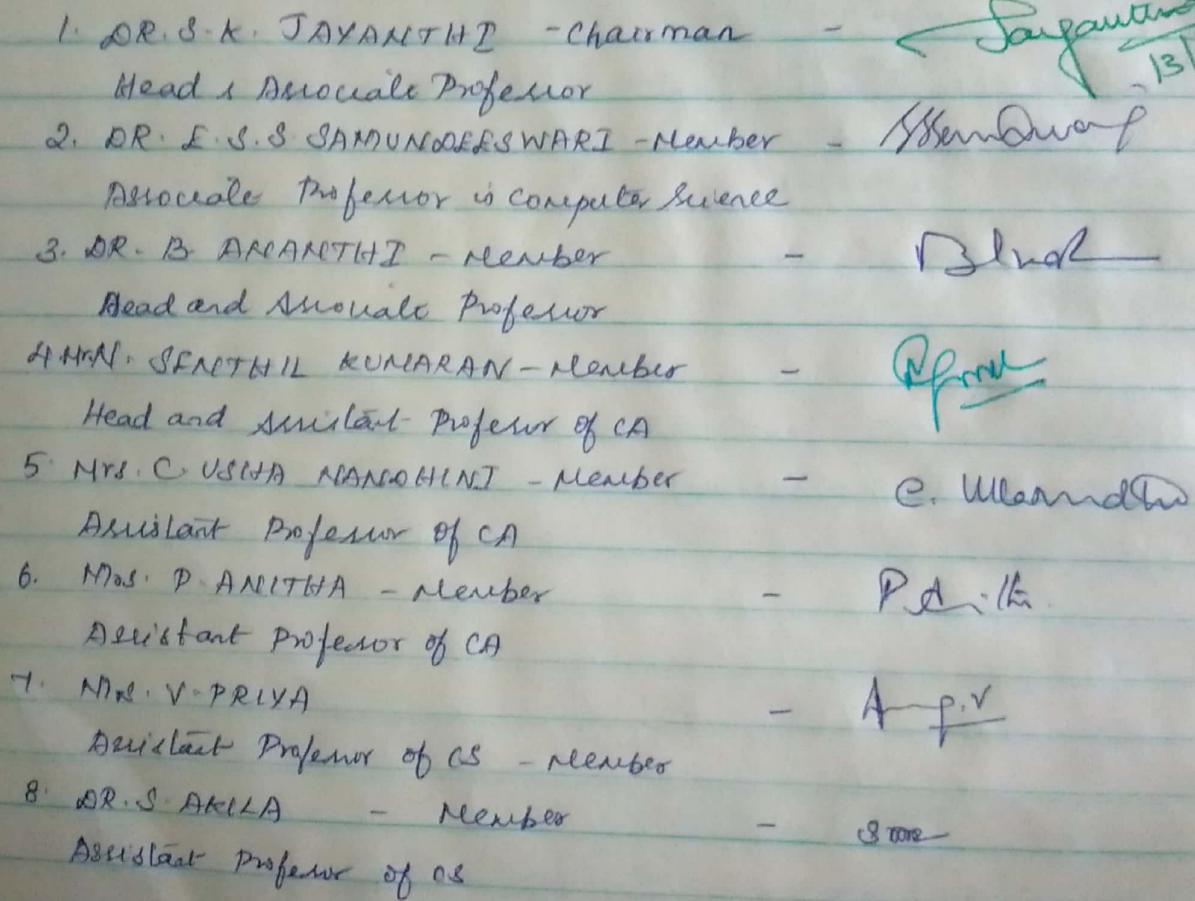 1. DR. S. K. JAYANTHI - Chairman -
Head & Associate Professor
2. DR. E. S. S SAMUNDEESWARI - Member -
Associate Professor in Computer Science
3. DR. B. ANANTHI - Member -
Head and Associate Professor
4 Mr. N. SENTHIL KUMARAN - Member -
Head and Assistant Professor of CA
5. Mrs. C. USHA NANDHINI - Member -
Assistant Professor of CA
6. Mrs. P. ANITHA - Member -
Assistant Professor of CA
7. Mrs. V. PRIYA -
Assistant Professor of CS - Member
8. DR. S. AKILA - Member -
Assistant Professor of CS